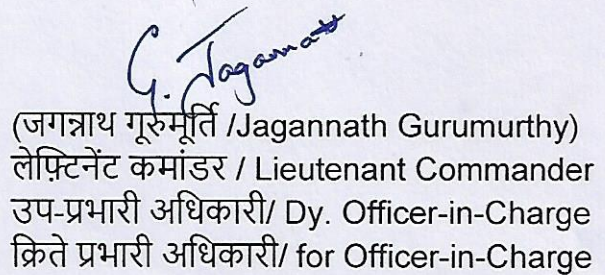 G. Jagannath
(जगन्नाथ गूरुमूर्ति /Jagannath Gurumurthy)
लेफ़्टिनेंट कमांडर / Lieutenant Commander
उप-प्रभारी अधिकारी/ Dy. Officer-in-Charge
क्रिते प्रभारी अधिकारी/ for Officer-in-Charge